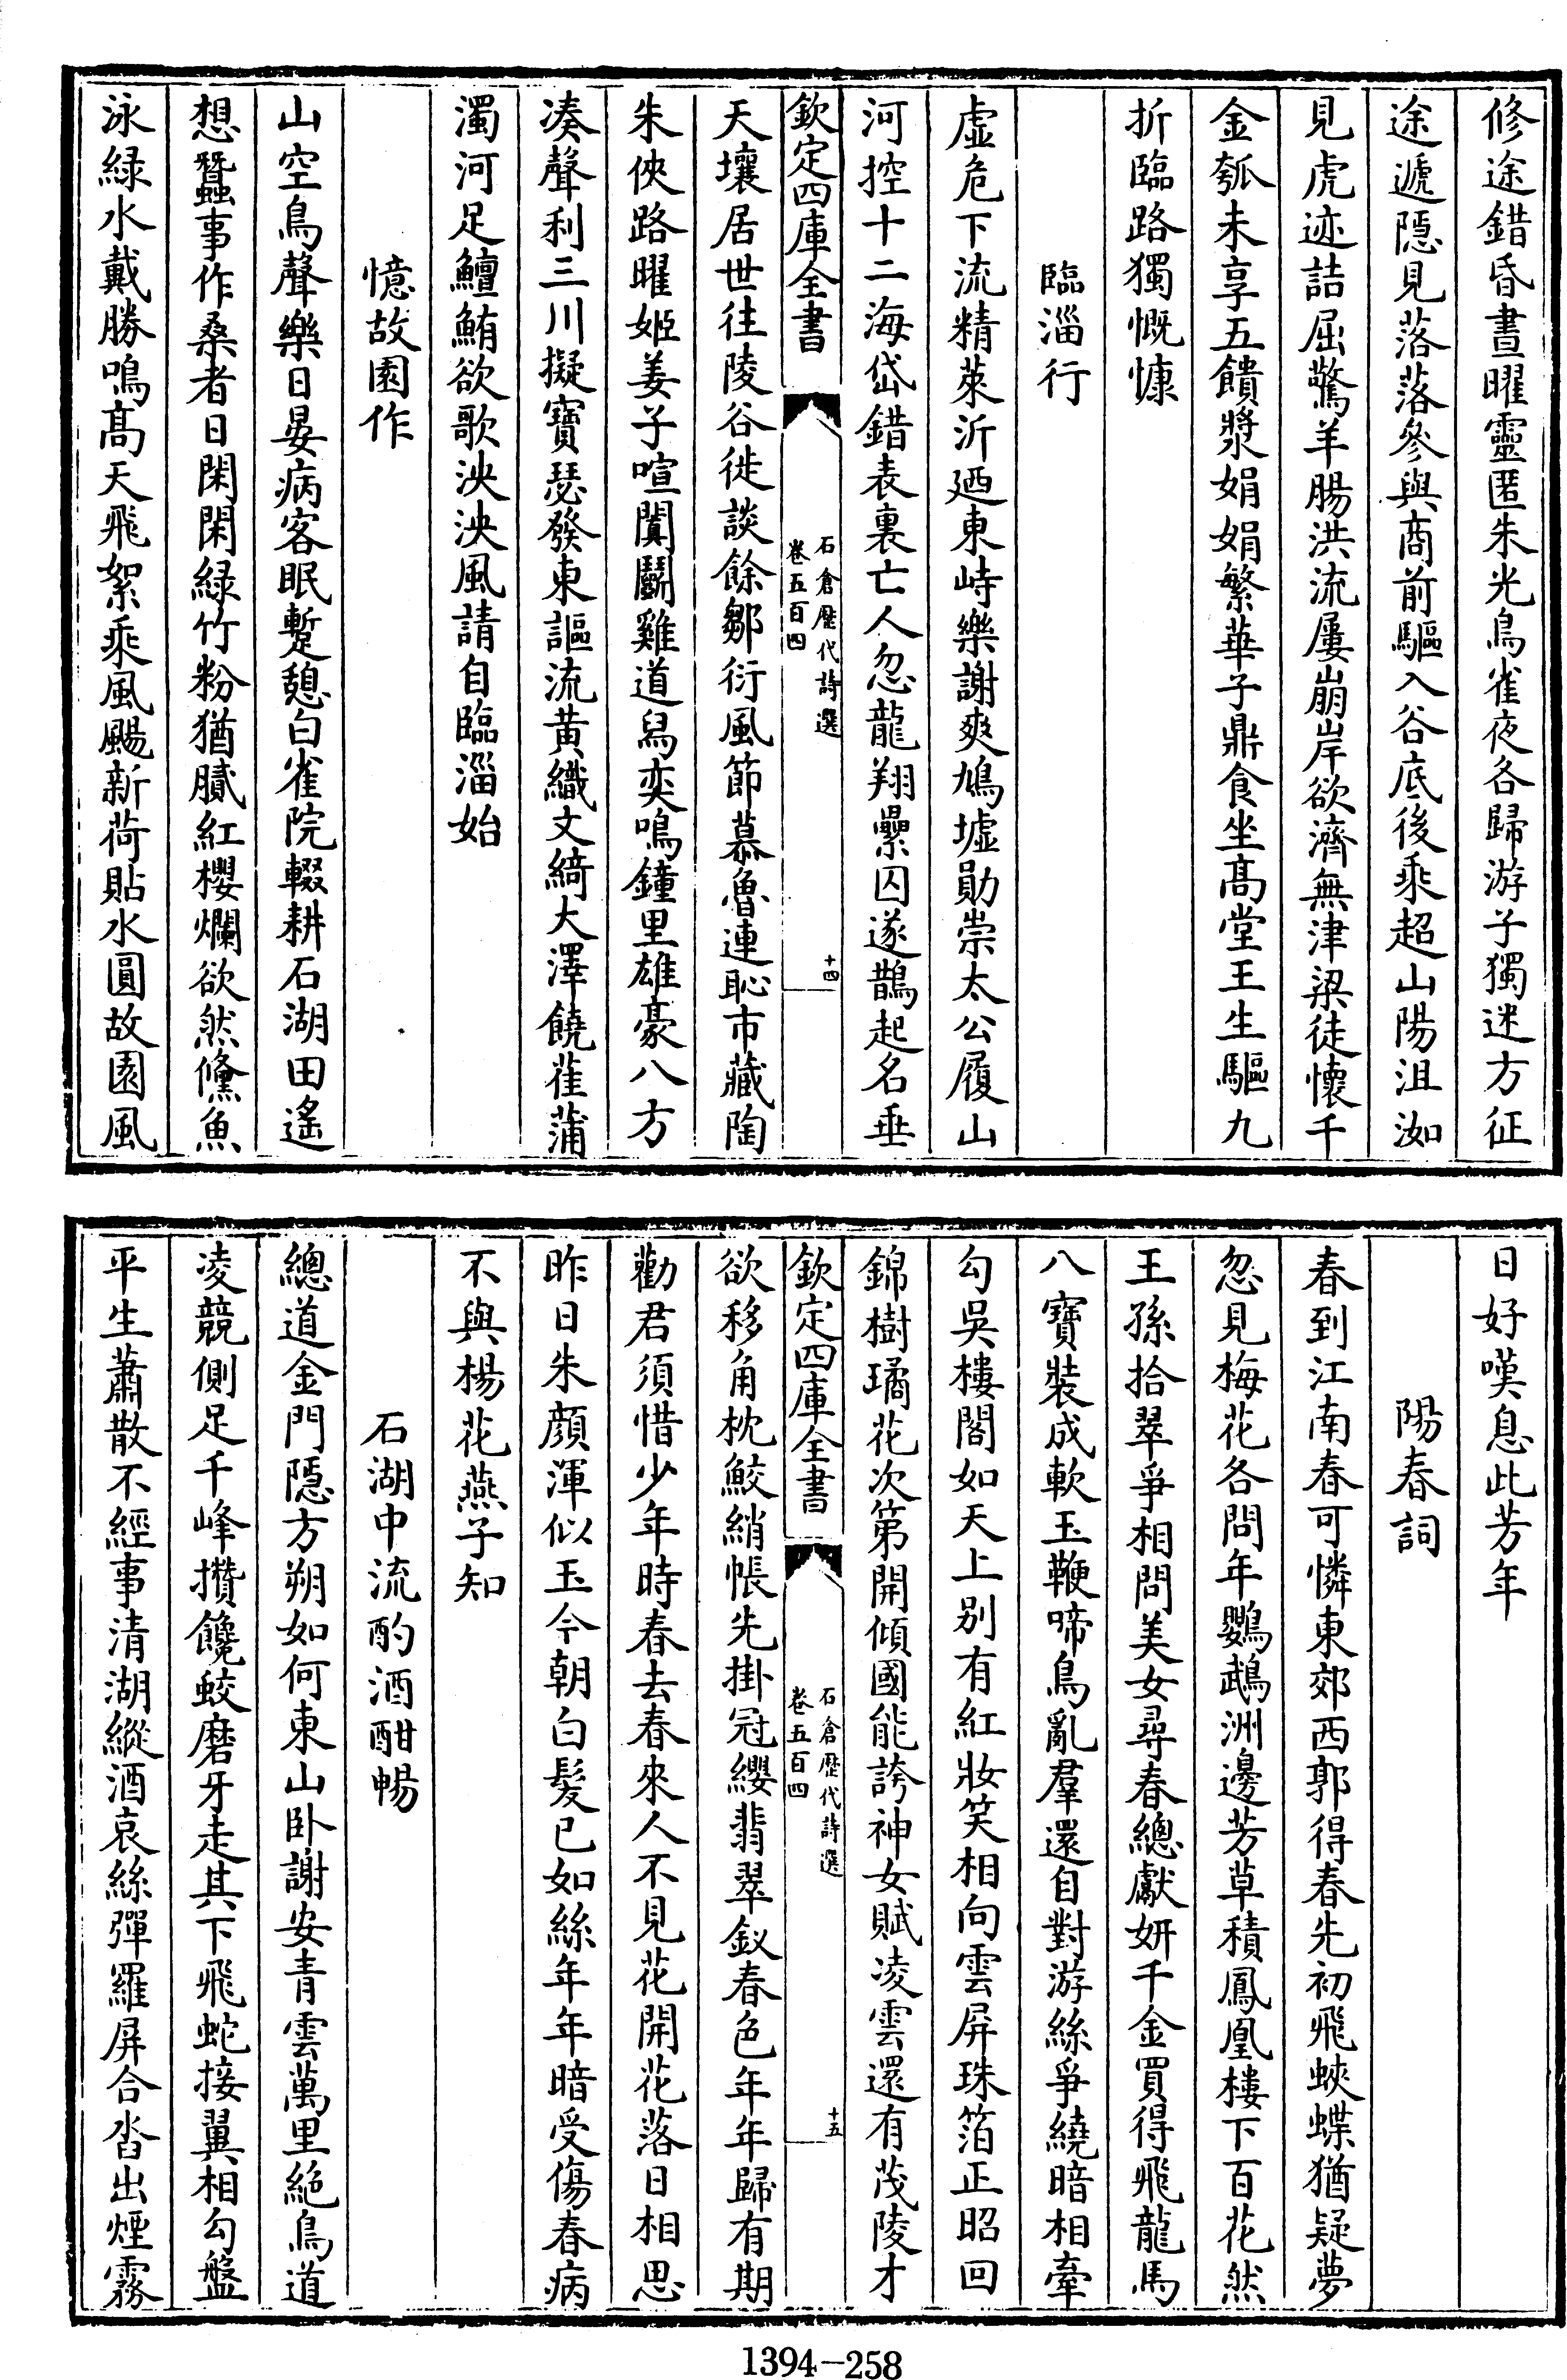 修途錯昏晝曜靈匿朱光鳥雀夜各歸游子獨迷方征
途遞隱見落落參與商前驅入谷底後乘超山陽沮洳
見虎迹詰屈驚羊腸洪流屢崩岸欲濟無津梁徒懷千
金瓠未享五饋漿娟娟繁華子鼎食坐高堂王生驅九
折臨路獨慨慷
臨淄行
虛危下流精萊沂廼東峙樂謝爽鳩墟勛崇太公履山
河控十二海岱錯表裏亡人忽龍翔纍囚遂鵲起名垂
欽定四庫全書
石倉歷代詩選
卷五百四
十四
天壤居世往陵谷徙談餘鄒衍風節慕魯連恥市藏陶
朱俠路曜姬姜子喧闐鬬雞道舄奕鳴鐘里雄豪八方
湊聲利三川擬寶瑟發東謳流黃織文綺大澤饒萑蒲
濁河足鱣鮪欲歌泱泱風請自臨淄始
憶故園作
山空鳥聲樂日晏病客眠蹔憩白雀院輟耕石湖田遙
想蠶事作桑者日閑閑綠竹粉猶膩紅櫻爛欲然鯈魚
泳綠水戴勝鳴髙天飛絮乘風颺新荷貼水圓故園風
日好嘆息此芳年
陽春詞
春到江南春可憐東郊西郭得春先初飛蛺蝶猶疑夢
忽見梅花各問年鸚鵡洲邊芳草積鳳凰樓下百花然
王孫拾翠爭相問美女尋春總獻妍千金買得飛龍馬
八寶裝成軟玉鞭啼鳥亂羣還自對游絲爭繞暗相牽
勾吳樓閣如天上別有紅妝笑相向雲屏珠箔正昭回
錦樹璚花次第開傾國能誇神女賦凌雲還有茂陵才
欽定四庫全書
石倉歷代詩選
卷五百四
十五
欲移角枕鮫綃帳先掛冠纓翡翠釵春色年年歸有期
勸君須惜少年時春去春來人不見花開花落日相思
昨日朱顏渾似玉今朝白髮已如絲年年暗受傷春病
不與楊花燕子知
石湖中流酌酒酣暢
總道金門隱方朔如何東山卧謝安青雲萬里絕鳥道
凌競側足千峰攢饞蛟磨牙走其下飛蛇接翼相勾盤
平生蕭散不經事清湖縱酒哀絲彈羅屏合沓出煙霧
1394-258